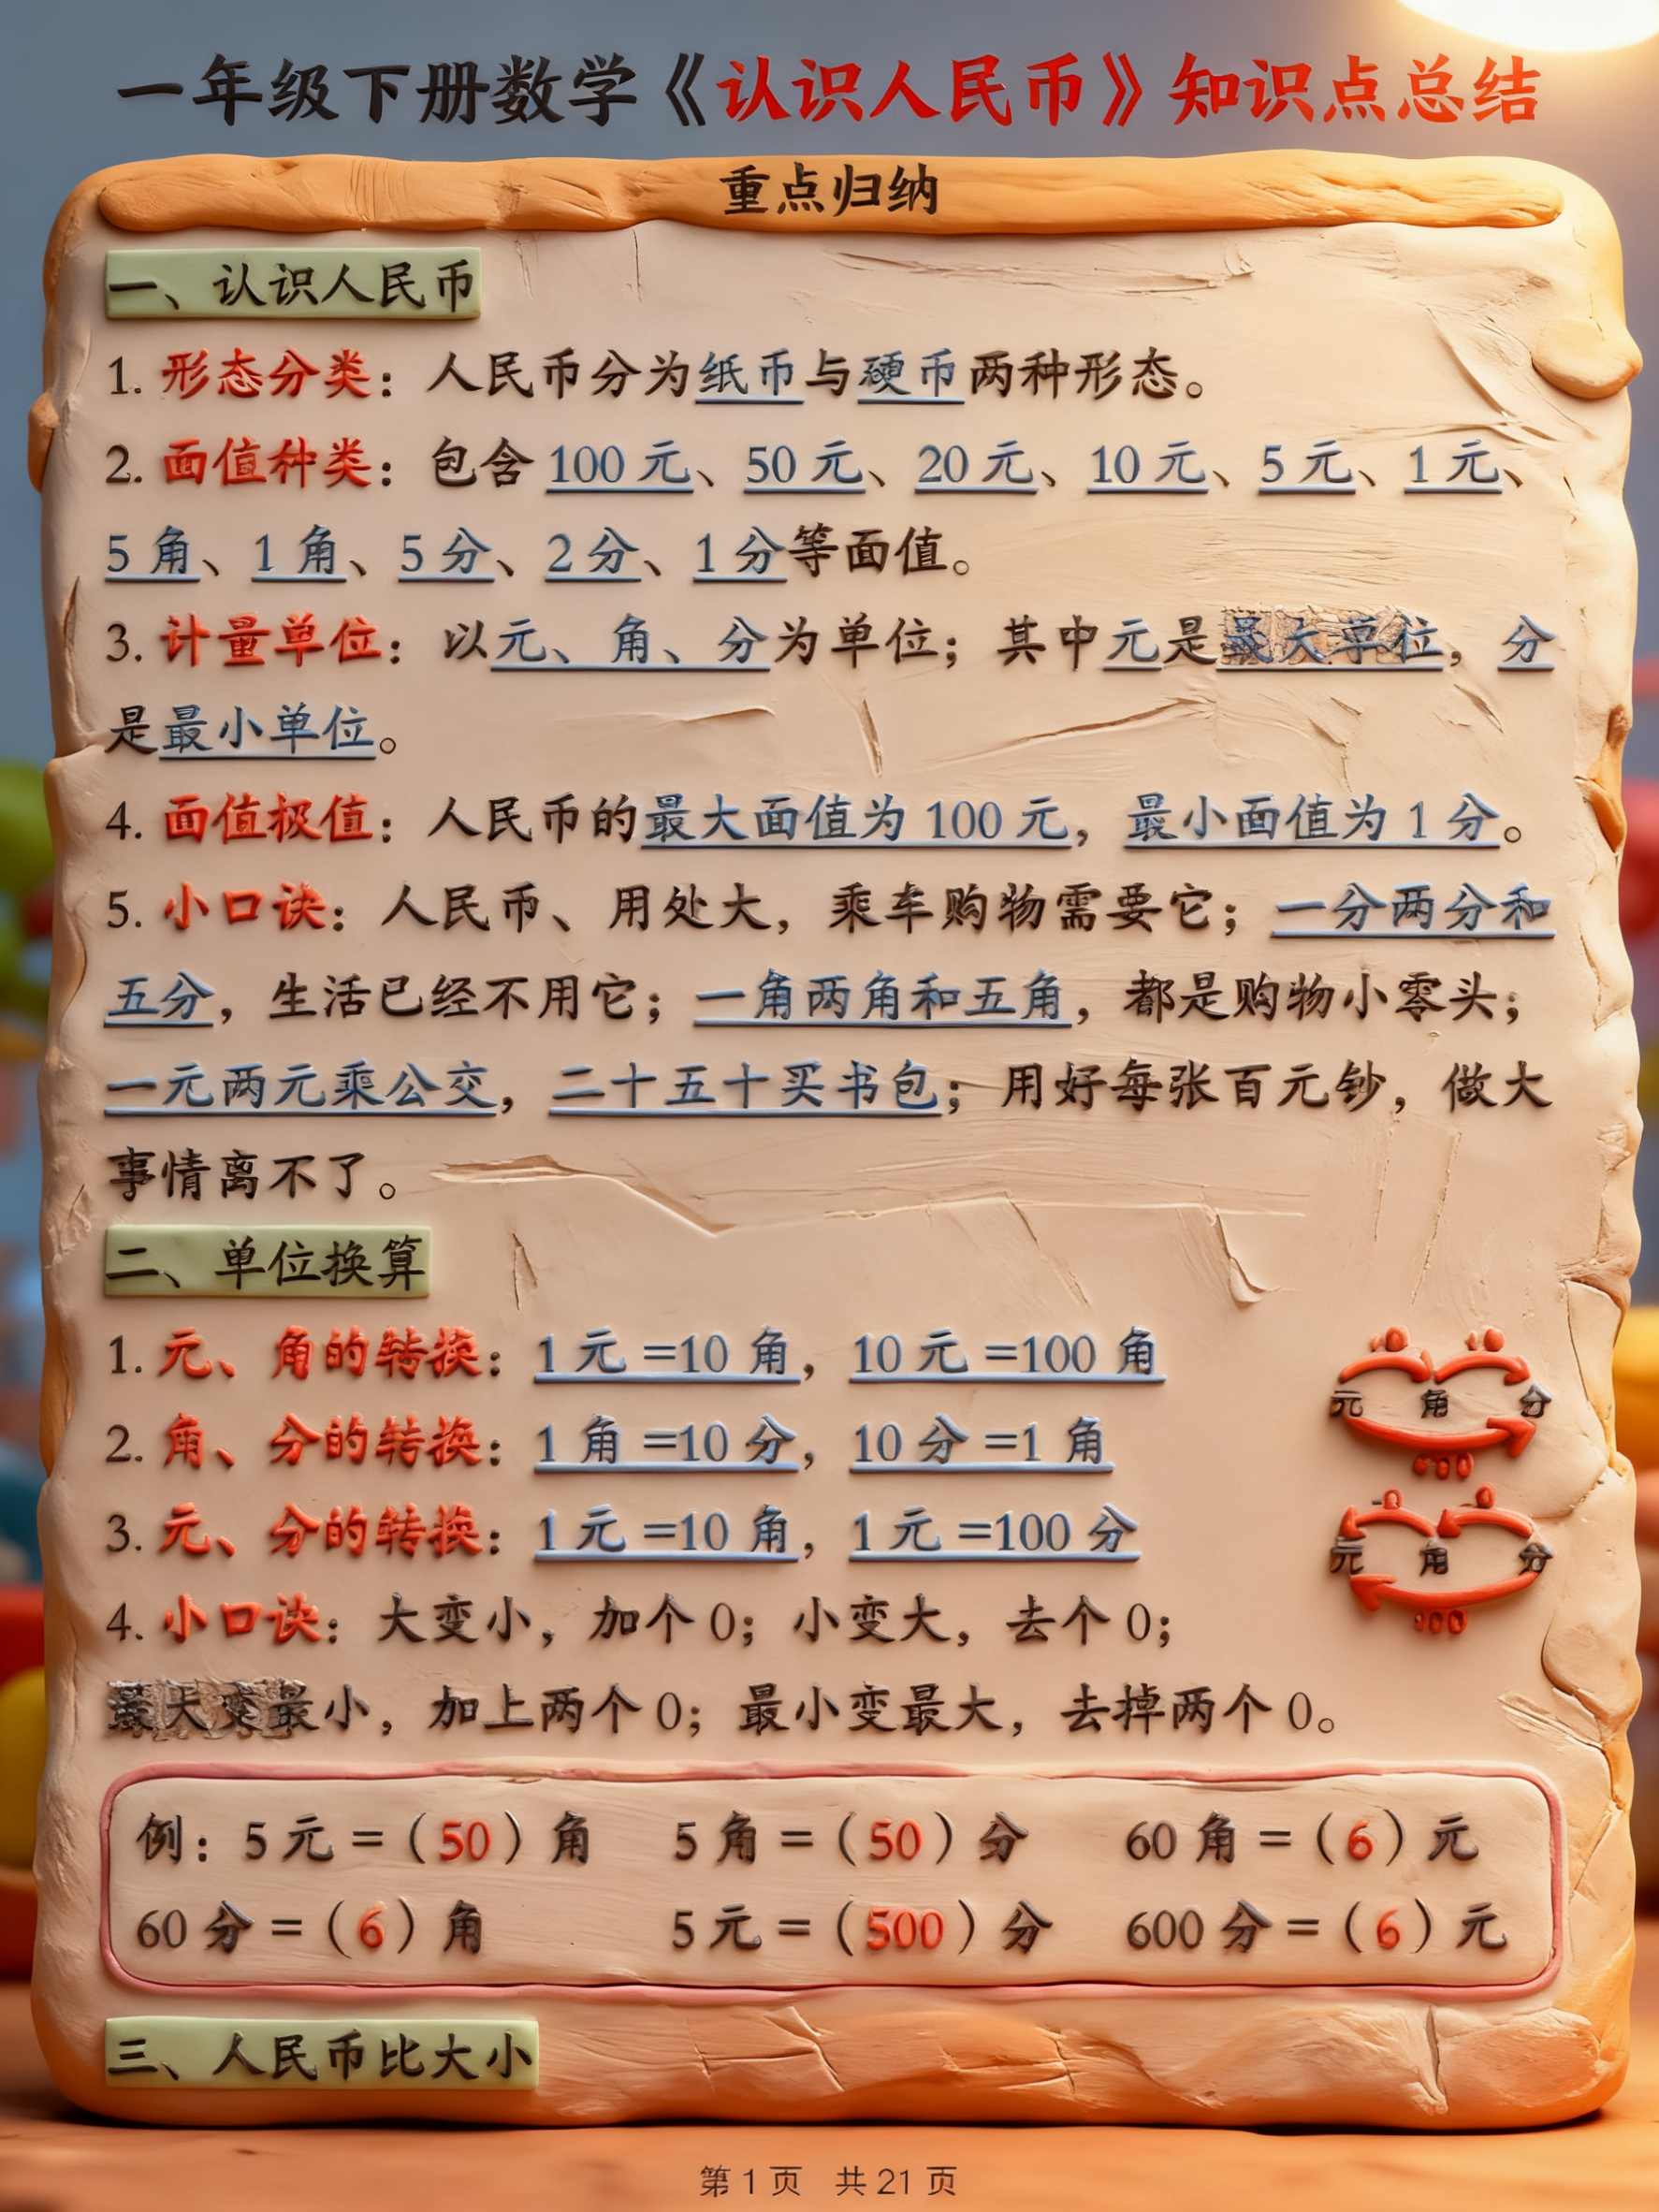 一年级下册数学《认识人民币》知识点总结
重点归纳
一、认识人民币
1. 形态分类：人民币分为纸币与硬币两种形态。
2. 面值种类：包含 100 元、50 元、20 元、10 元、5 元、1 元、
5 角、1 角、5 分、2 分、1 分等面值。
3. 计量单位：以元、角、分为单位；其中元是最大单位，分
是最小单位。
4. 面值极值：人民币的最大面值为 100 元，最小面值为 1 分。
5. 小口诀：人民币、用处大，乘车购物需要它；一分两分和
五分，生活已经不用它；一角两角和五角，都是购物小零头；
一元两元乘公交，二十五十买书包；用好每张百元钞，做大
事情离不了。
二、单位换算
1. 元、角的转换：1 元 =10 角，10 元 =100 角
2. 角、分的转换：1 角 =10 分，10 分 =1 角
3. 元、分的转换：1 元 =10 角，1 元 =100 分
元 角 分
元 角 分
100
4. 小口诀：大变小，加个 0；小变大，去个 0；
最大变最小，加上两个 0；最小变最大，去掉两个 0。
例：5 元 =（50）角 5 角 =（50）分 60 角 =（6）元
60 分 =（6）角 5 元 =（500）分 600 分 =（6）元
三、人民币比大小
第 1 页 共 21 页